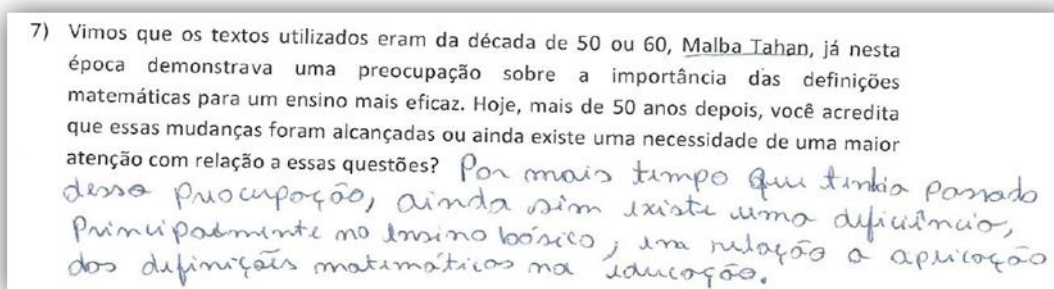 7) Vimos que os textos utilizados eram da década de 50 ou 60, Malba Tahan, já nesta
época demonstrava uma preocupação sobre a importância das definições
matemáticas para um ensino mais eficaz. Hoje, mais de 50 anos depois, você acredita
que essas mudanças foram alcançadas ou ainda existe uma necessidade de uma maior
atenção com relação a essas questões? Por mais tempo que tinha passado
dessa preocupação, ainda sim existe uma deficiência,
Principalmente no ensino básico, em relação a aplicação
das definições matemáticas na educação.